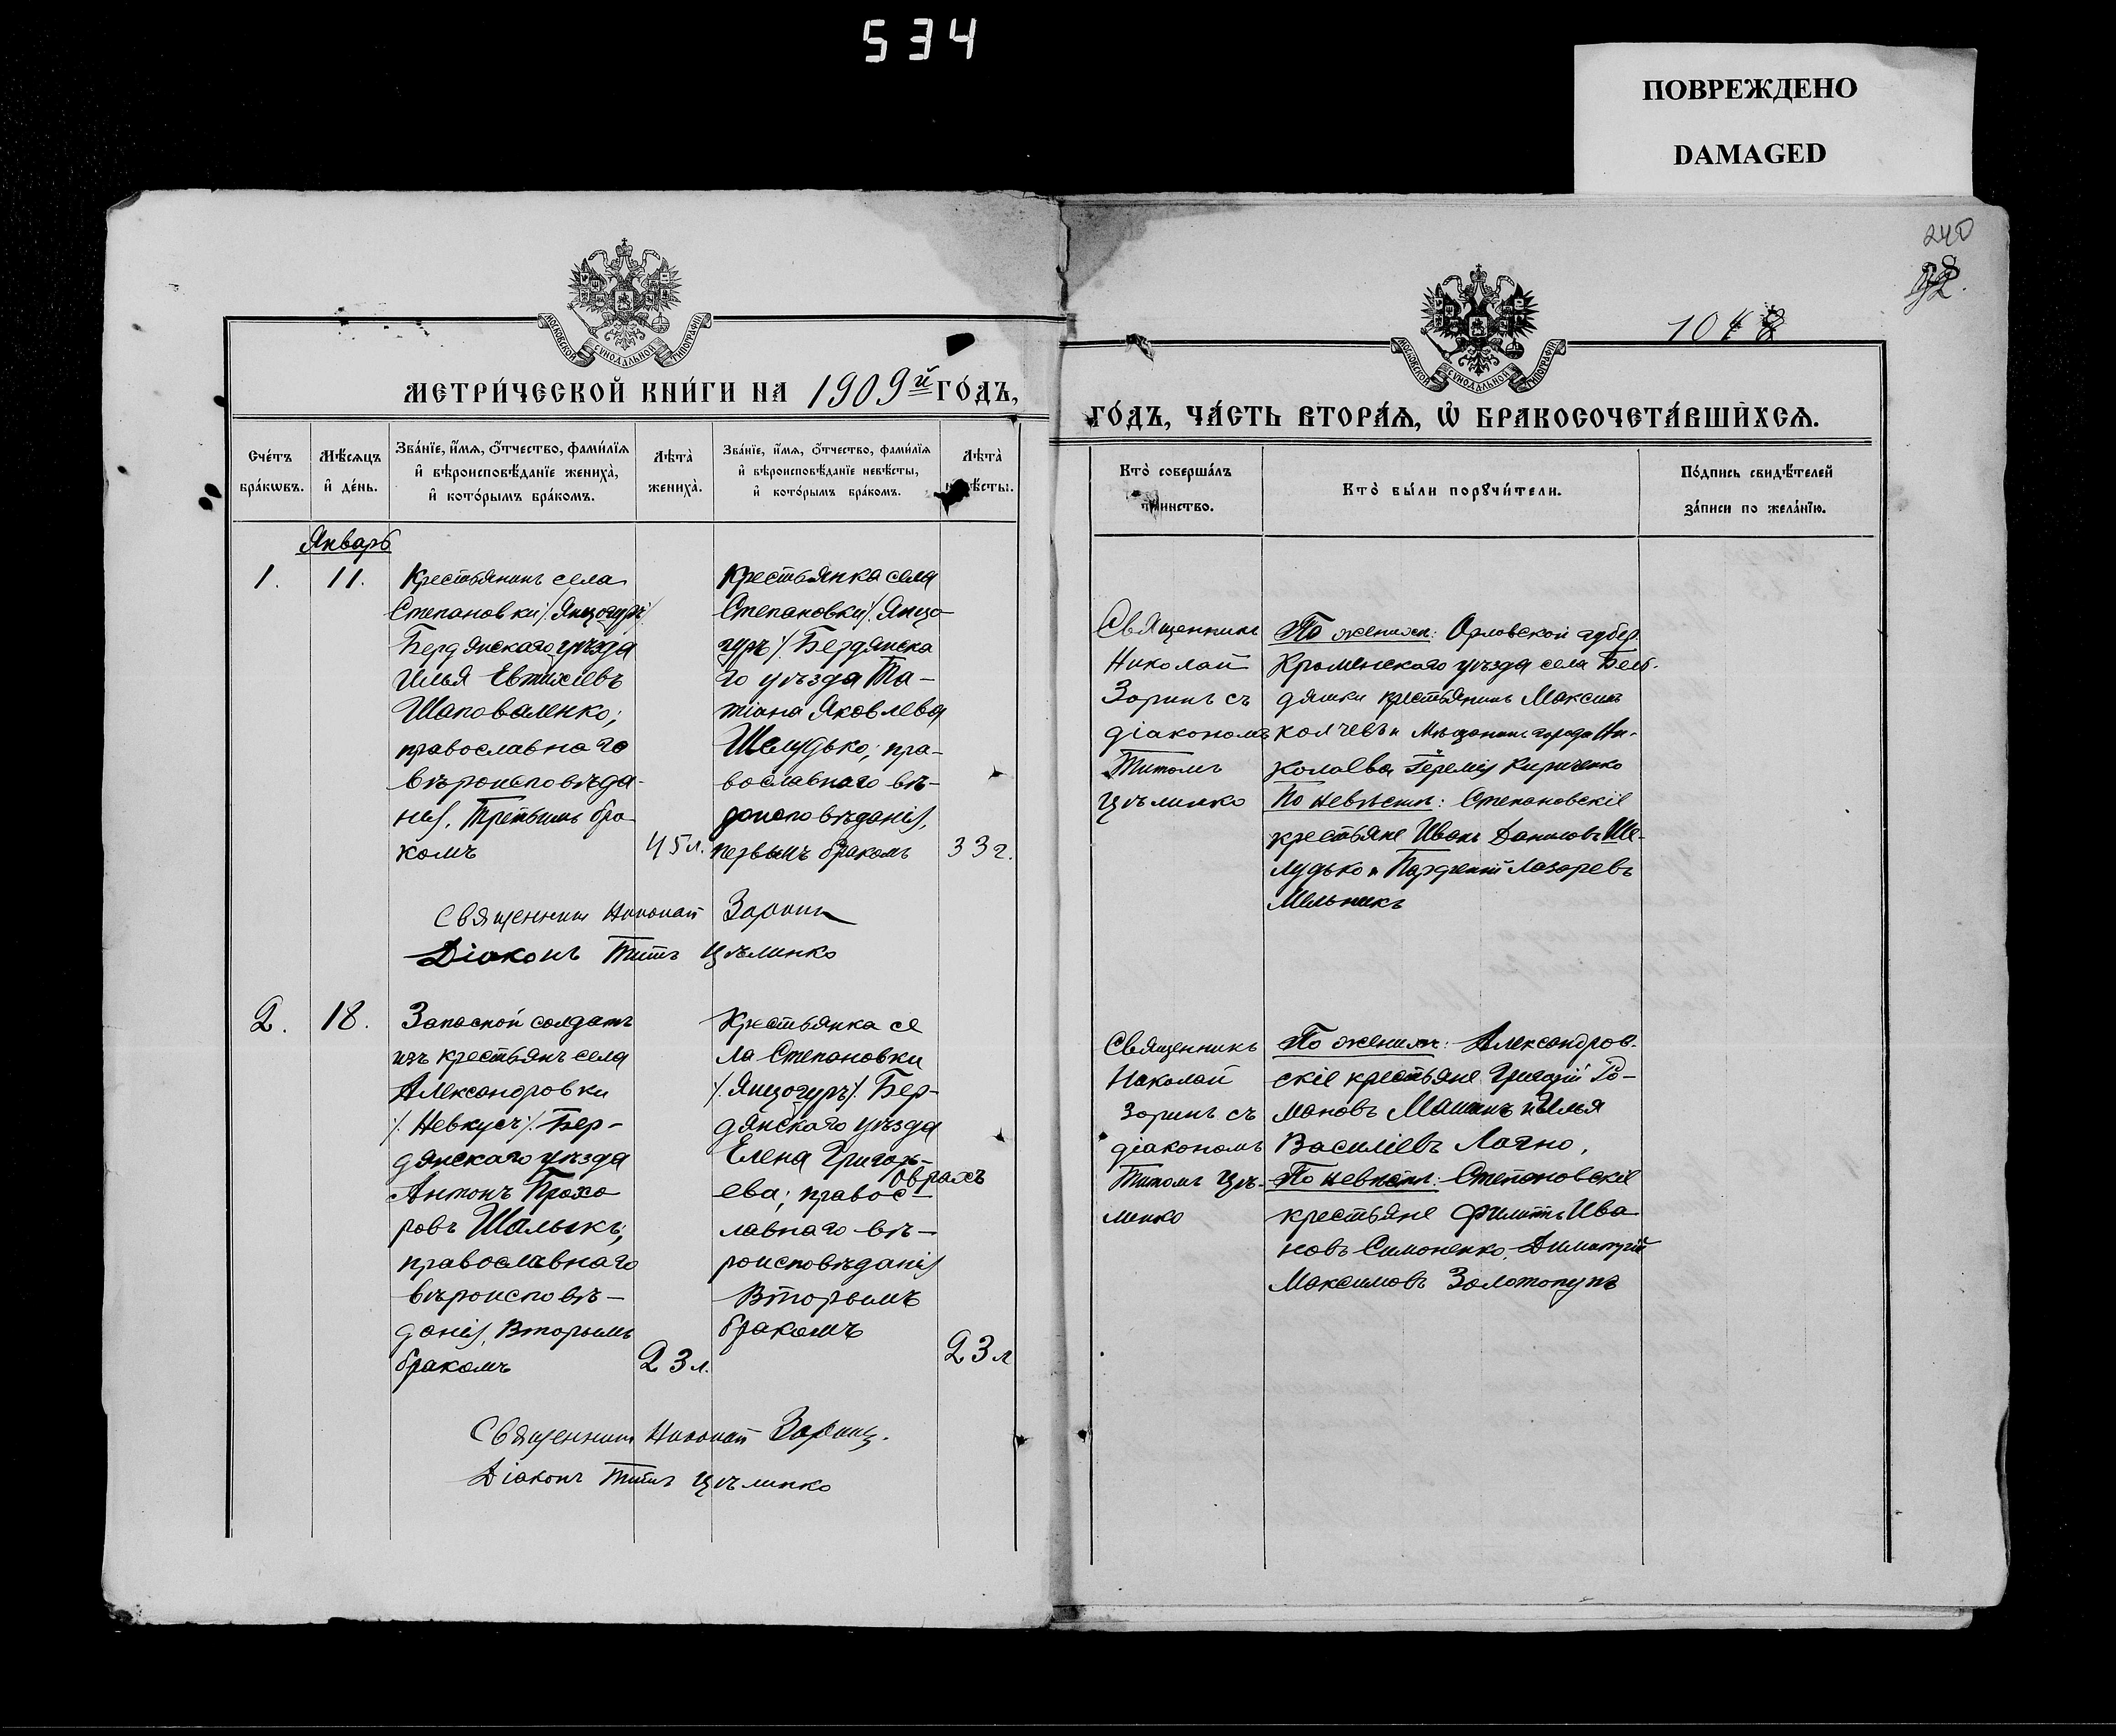 534
ПОВРЕЖДЕНО
DAMAGED
240
МОСКОВСКОЙ СѴНОДАЛЬНОЙ ТИПОГРАФІИ
МЕТРИ́ЧЕСКОЙ КНИ́ГИ НА 1909й ГО́ДЪ,
Сче́тъ бра́кѡвъ.
Мѣ́сяцъ и҆ де́нь.
Зва́нїе, и҆́мѧ, ѻ҆́тчество, фами́лїѧ
и҆ вѣроисповѣ́данїе жениха̀,
и҆ кото́рымъ бра́комъ.
Лѣта̀ жениха̀.
Зва́нїе, и҆́мѧ, ѻ҆́тчество, фами́лїѧ
и҆ вѣроисповѣ́данїе невѣ́сты,
и҆ кото́рымъ бра́комъ.
Лѣта̀
Январь
1. 11.
Крестьянинъ села
Степановки /Янцогуръ/
Бердянскаго уѣзда
Илья Евтихіевъ
Шаповаленко;
православнаго
вѣроисповѣда-
нія, Третьимъ бра
комъ
45 л.
Крестьянка села
Степановки /. Янцо-
гуръ /. Бердянска
го уѣзда Та-
тіана Яковлева
Шелудько; пра-
вославнаго вѣ-
роисповѣданія,
первымъ бракомъ
33 г.
Священникъ Николай Зоринъ
Діаконъ Титъ Цѣлинко
2. 18.
Запасной солдатъ
изъ крестьянъ села
Александровки
/. Невкусъ /. Бер-
дянскаго уѣзда
Антонъ Прохо
ровъ Шалыкъ;
православнаго
вѣроисповѣ-
данія, Вторымъ
бракомъ
23 л.
Крестьянка се
ла Степановки
/. Янцогуръ /. Бер-
дянскаго уѣзда
Елена Григорь-
ева; правос-
лавнаго вѣ-
роисповѣданія
Вторымъ
бракомъ
23 л
Священникъ Николай Зоринъ.
Діаконъ Титъ Цѣлинко
МОСКОВСКОЙ СѴНОДАЛЬНОЙ ТИПОГРАФІИ
ГО́ДЪ, ЧА́СТЬ ВТОРА́Ѧ, Ѡ҆ БРАКОСОЧЕТА́ВШИХСѦ.
Кто̀ соверша́лъ
Кто̀ бы́ли порꙋчи́тели.
По́дпись свидѣ́телей
за́писи по жела́нїю.
Священникъ
Николай
Зоринъ съ
діакономъ
Титомъ
Цѣлинко
По женихѣ: Орловской губер.
Кроменскаго уѣзда села
крестьянинъ Максимъ
и Мѣщанинъ города Ни-
колаева Іеремія Кириченко
По невѣстѣ: Степановскіе
крестьяне Иванъ Даниловъ Ше-
лудько и Парфеній Лазаревъ
Мельникъ
Священникъ
Николай
Зоринъ съ
діакономъ
Титомъ Цѣ-
линко
По женихѣ: Александров.
скіе крестьяне Григорій Ро-
мановъ Машинъ и Илья
Василіевъ Лагно,
По невѣстѣ: Степановскіе
крестьяне Филиппъ Ива
новъ Симоненко, Димитрій
Максимовъ Золотопупъ